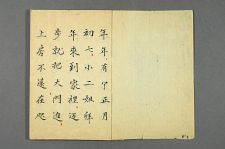 年年有个正月
初六小二姐拜
年來到家裡返
步就把大門進
上房不還在咫